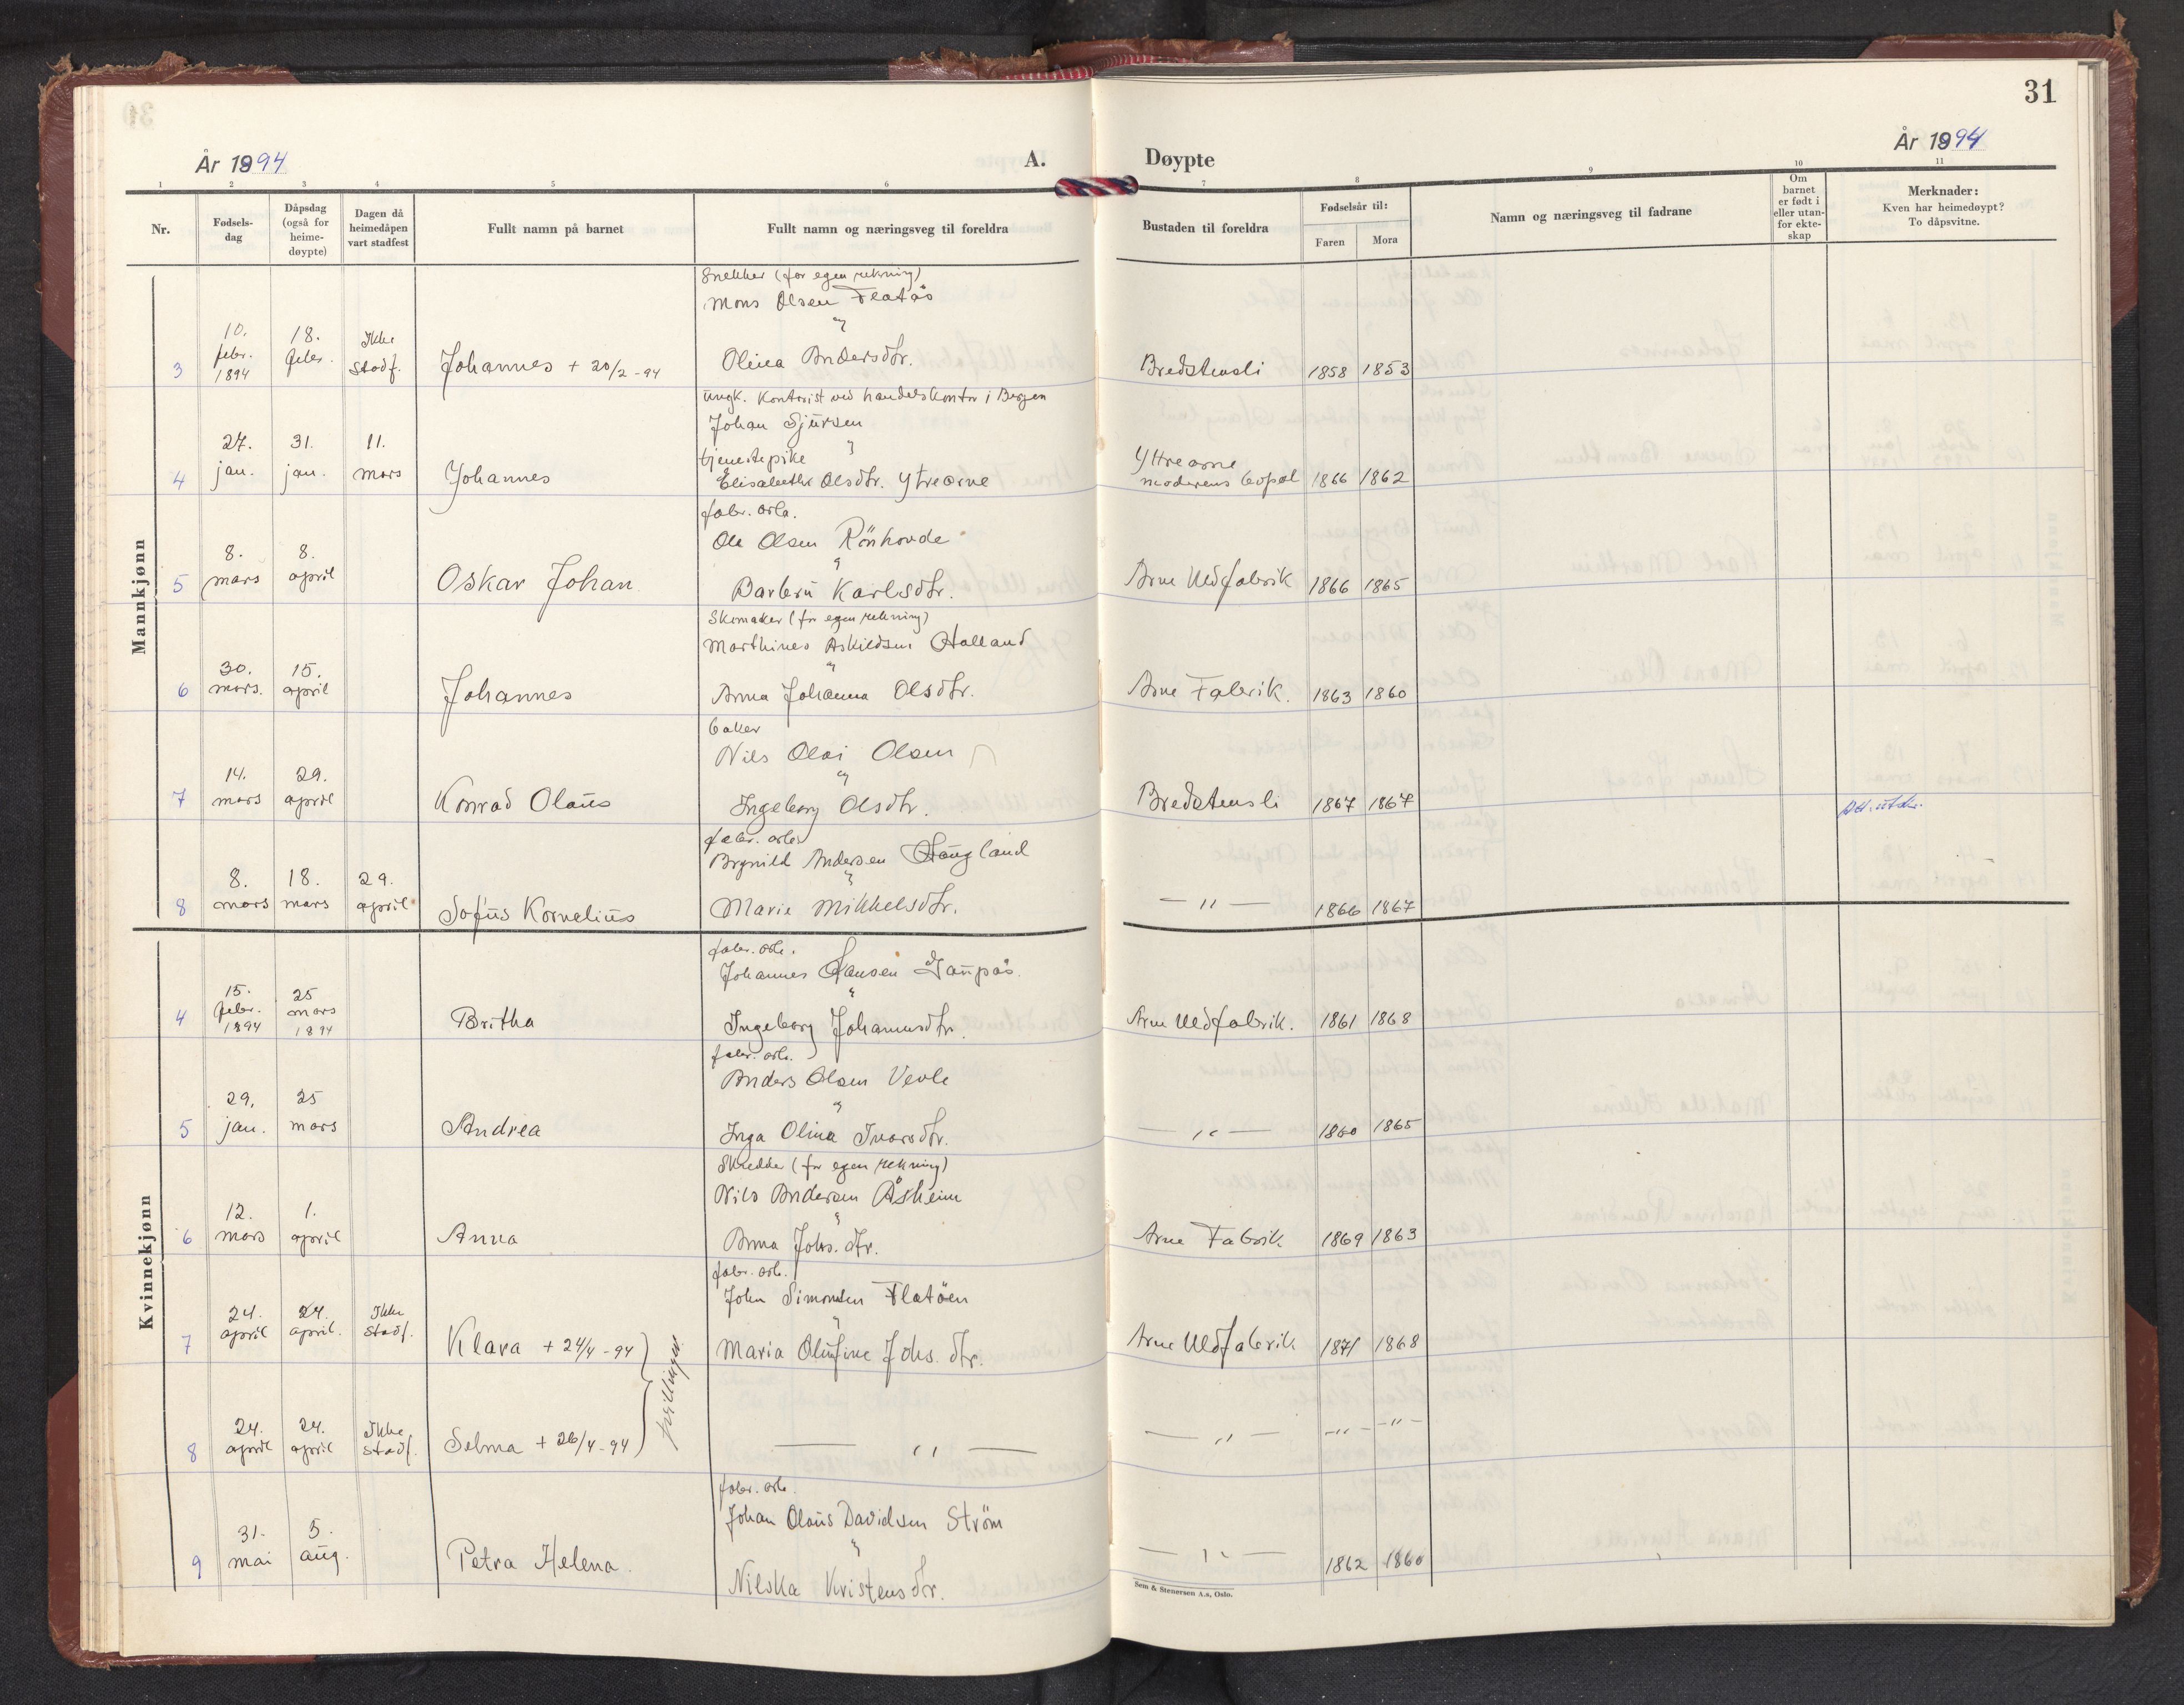 31
År 1894 A. Døypte År 1894
1 2 3 4 5 6 7 8 9 10 11
Nr. Fødsels-dag Dåpsdag (også for heime-døypte) Dagen då heimedåpen vart stadfest Fullt namn på barnet Fullt namn og næringsveg til foreldra Bustaden til foreldra Fødselsår til: Faren Mora Namn og næringsveg til fadrane Om barnet er født i eller utan-for ekte-skap Merknader: Kven har heimedøypt? To dåpsvitne.
Mannkjønn
Snekker (for egen rekning)
Mons Olsen Flatås
og
3 10. febr. 1894 18. febr. Ikke stadf. Johannes + 20/2-94 Olina Andersdtr. Bredstensli 1858 1853
ungk. Kontorist ved handelskontor i Bergen
Johan Sjursen
og
tjenestepike
4 27. jan. 31. jan. 11. mars Johannes Elisabeth Olsdtr. Ytrearne Ytrearne moderens bopæl 1866 1862
fabr. arb.
Ole Olsen Rönhovde
og
5 8. mars 8. april Oskar Johan Barbru Karlsdtr. Arne Uldfabrik 1866 1865
Skomaker (for egen rekning)
Marthines Askildsen Halland
og
6 30. mars. 15. april Johannes Anna Johanna Olsdtr. Arne Fabrik. 1863 1860
baker
Nils Olai Olsen
og
7 14. mars 29. april Konrad Olaus Ingeborg Olsdtr. Bredstensli 1867 1867 Att. utskr.
fabr. arb.
Brynild Andersen Haugland
og
8 8. mars 18. mars 29. april Sofus Kornelius Marie Mikkelsdtr. — " — 1866 1867
Kvinnekjønn
fabr. arb.
Johannes Hansen Gaupås
og
4 15. febr. 1894 25 mars 1894 Britha Ingeborg Johannesdtr. Arne Uldfabrik. 1861 1868
fabr. arb.
Anders Olsen Vevle
og
5 29. jan. 25 mars Andrea Inga Olina Ivarsdtr. — " — 1860 1865
Skredder (for egen rekning)
Nils Andersen Åsheim
og
6 12. mars 1. april Anna Anna Johs. dtr. Arne Fabrik 1869 1863
fabr. arb.
John Simonsen Flatöen
og
7 24. april 24. april. Ikke stadf. Klara + 24/4-94 Maria Olufine Johs. dtr. Arne Uldfabrik 1871 1868
8 24. april 24. april Ikke stadf. Selma + 26/4-94 — " — — " — — " — — " —
fabr. arb.
Johan Olaus Davidsen Ström
og
9 31. mai 5. aug. Petra Helena. Nilska Kristensdtr. — " — 1862 1860
Sem & Stenersen A.s, Oslo.